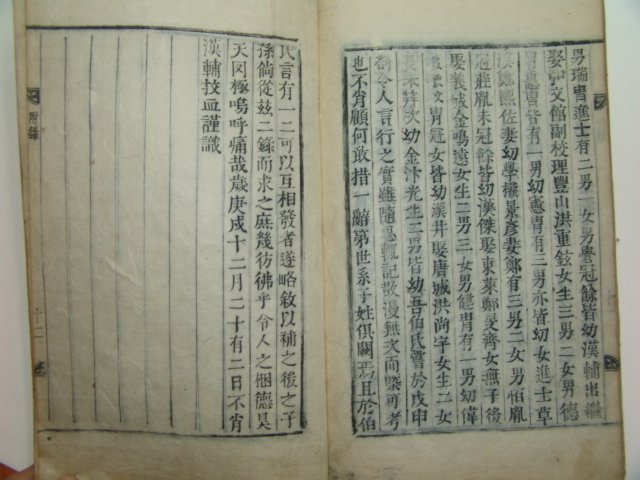 男瑞胄進士有二男一女男㽦冠餘皆幼漢輔出繼
娶弘文館副校理豐山洪重鉉女生三男二女男德
胄憲胄皆有一男幼憲胄有三男亦皆幼女進士草
溪鄭熙佐妻幼學權景彥妻鄭有三男二女男怕胤
冠莊胤未冠餘皆幼漢傑娶東萊鄭旻濟女無子後
娶義城金鳴遠女生二男三女男健胄有一男幼偉
胄欽文胄冠女皆幼漢井娶唐城洪尚宇女生二女
長未筓次幼金汴光生二男皆幼吾伯氏嘗於戊申
劄令人言行之實雖隨思輒記散漫無次而槩可考
也不肖顧何敢措一辭第世系子姓俱闕焉且於伯
氏言有一二可以互相發者遂略敘以補之後之子
孫倘從玆二錄而求之庶幾彷彿乎令人之梱德昊
天罔極嗚呼痛哉歲庚戌十二月二十有二日不肖
漢輔抆血謹識
附錄
十二